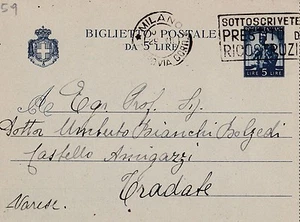 59
BIGLIETTO POSTALE
DA 5 LIRE
MILANO
SOTTOSCRIVETE
PREST
RICOSTRUZI
LIRE 5 LIRE
Al Egr. Prof. Sig.
Dottor Umberto Bianchi Bolgedi
Castello Amigazzi
Tradate
Varese.